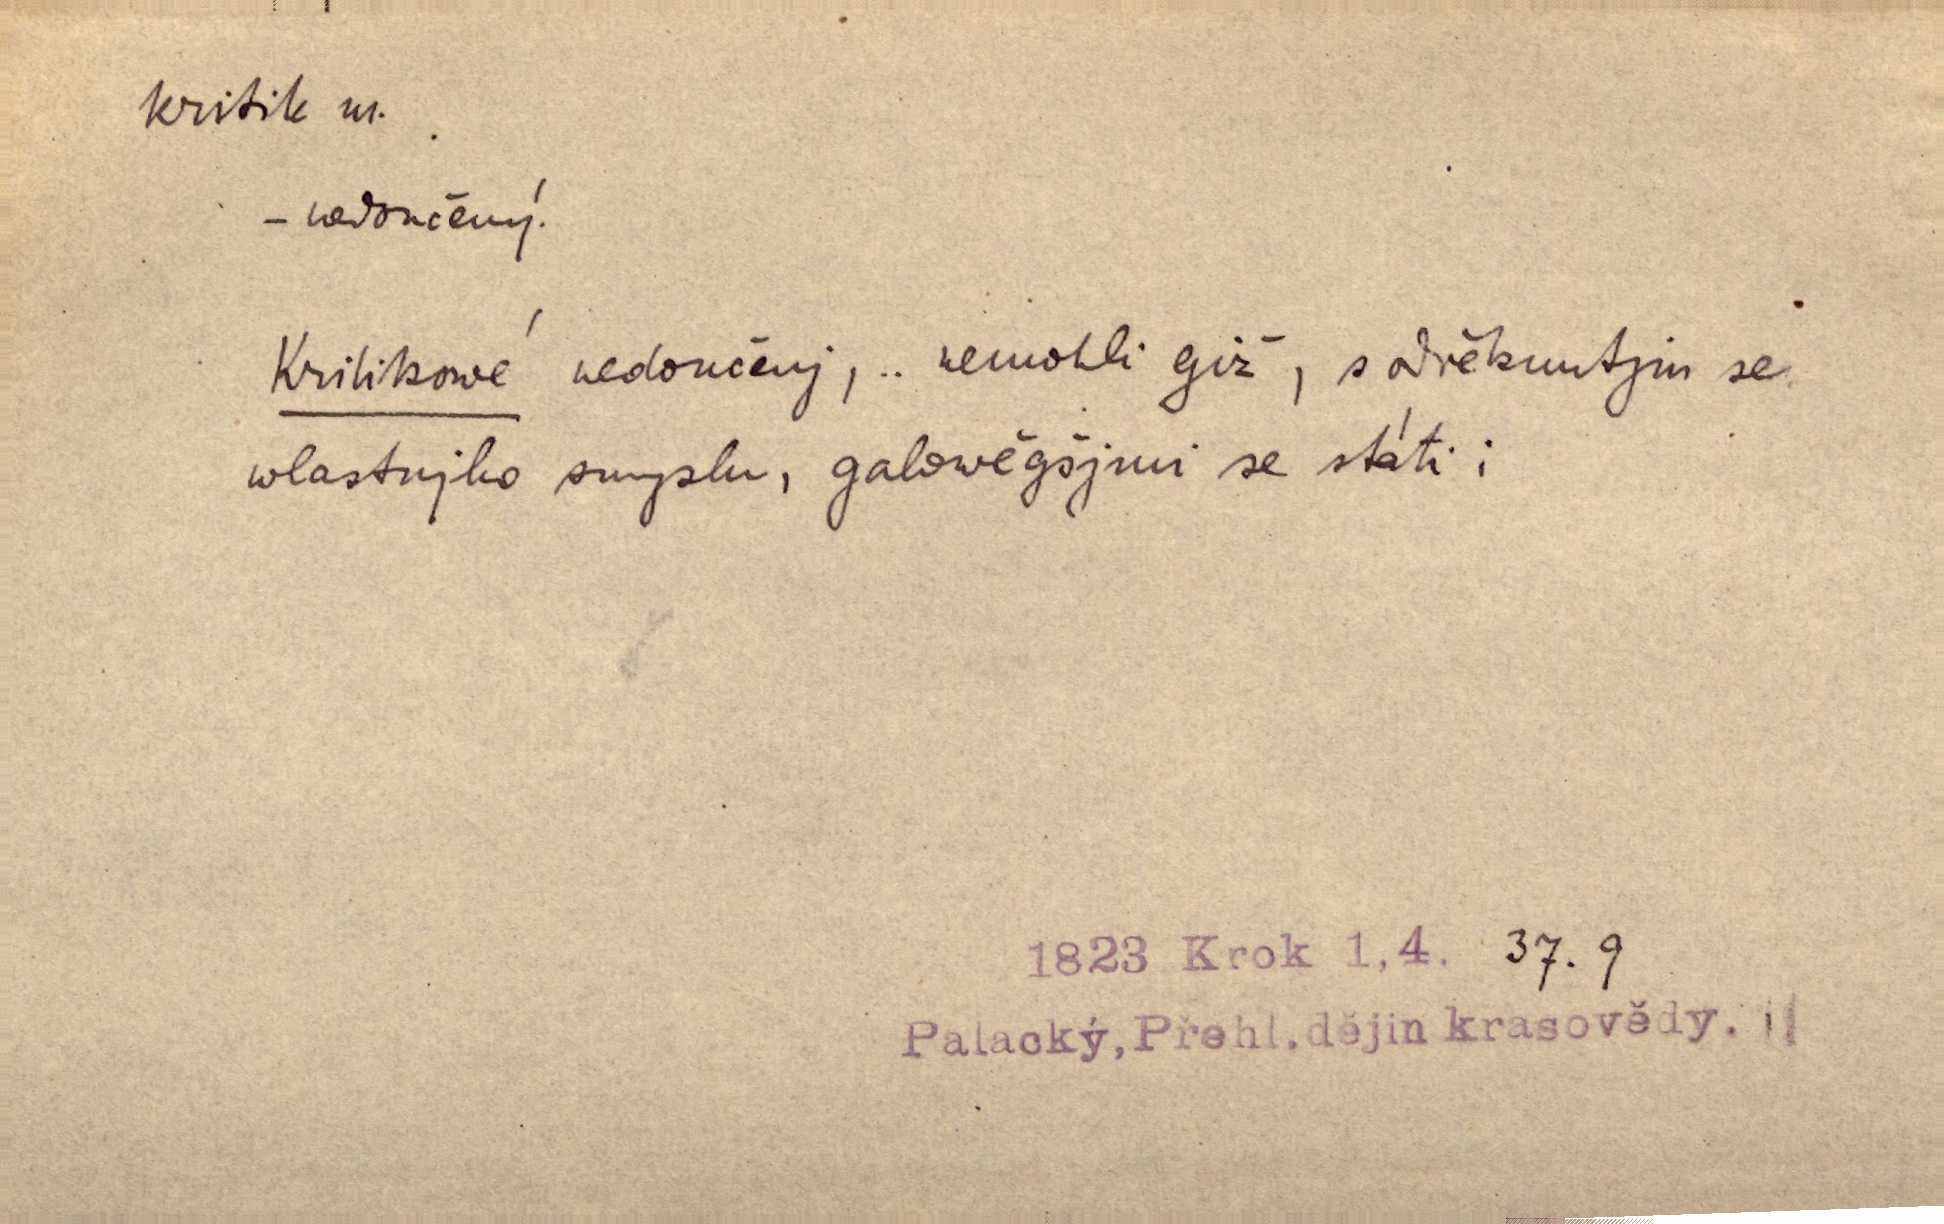 kritik m.
– nedoučený.
Kritikowé nedoučenj, .. nemohli giž, s odřeknutjm se
wlastnjho smyslu, galowěgšjmi se státi ;
1823 Krok 1,4. 37. 9
Palacký, Přehl. dějin krasovědy. II